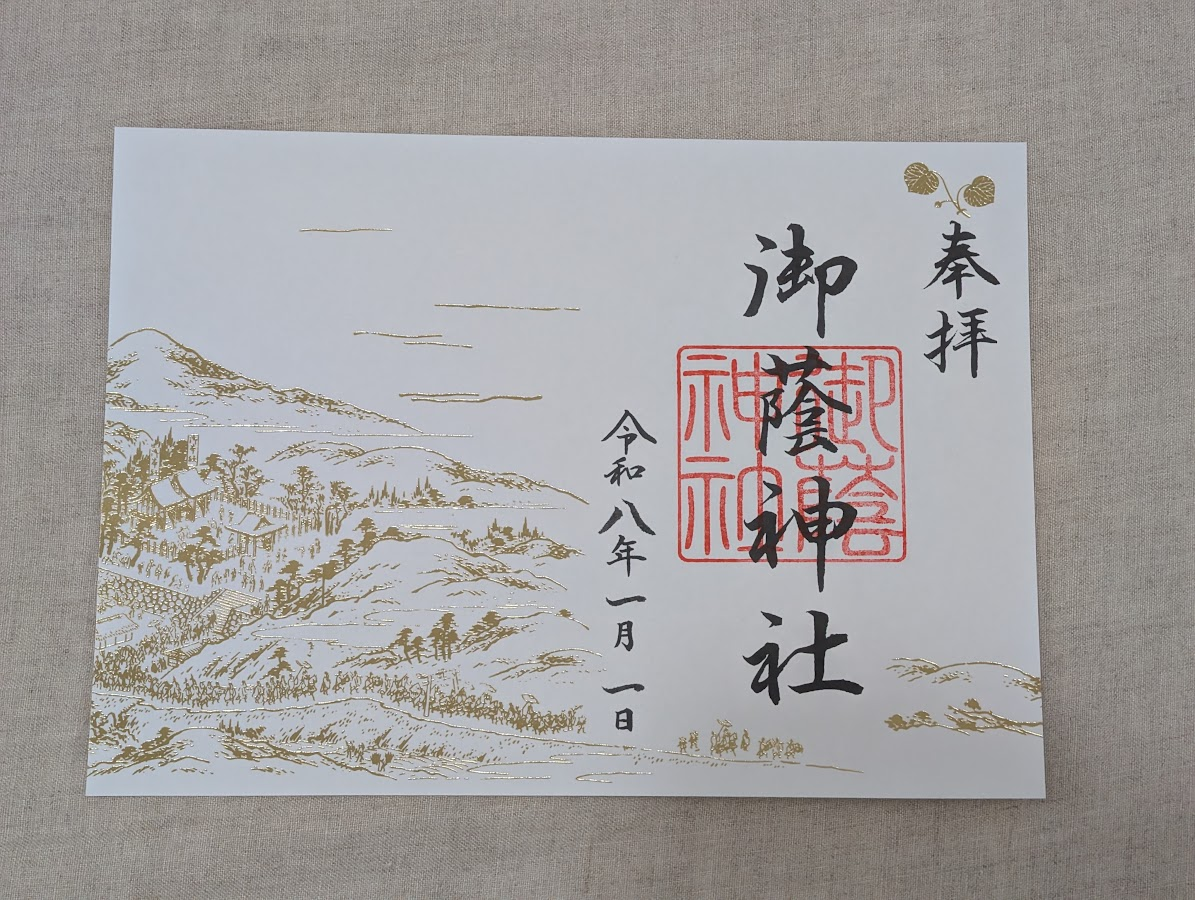 奉拝
御蔭神社
御蔭神社
令和八年一月一日